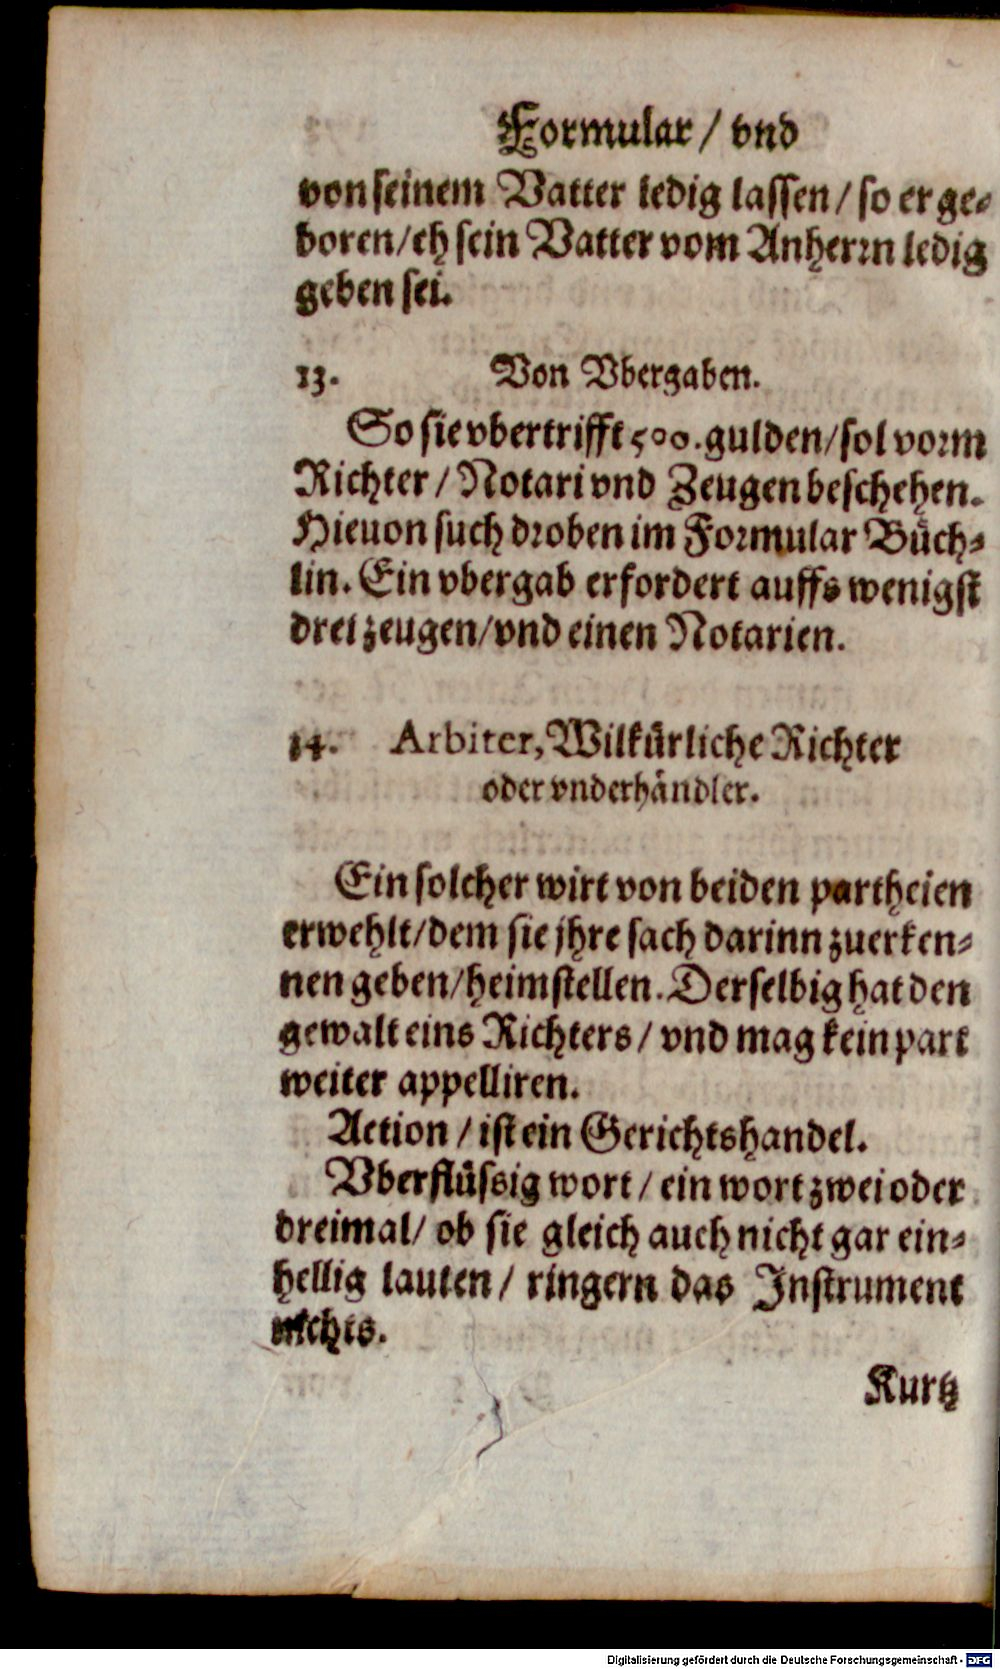 Formular / vnd
von seinem Vatter ledig lassen / so er ge-
boren / eh sein Vatter vom Anherrn ledig
geben sei.
13. Von Vbergaben.
So sie vbertrifft 500. gulden / sol vorm
Richter / Notari vnd Zeugen beschehen.
Hieuon such droben im Formular Büch-
lin. Ein vbergab erfordert auffs wenigst
drei zeugen / vnd einen Notarien.
14. Arbiter, Wilkürliche Richter
oder vnderhändler.
Ein solcher wirt von beiden partheien
erwehlt / dem sie jhre sach darinn zuerken-
nen geben / heimstellen. Derselbig hat den
gewalt eins Richters / vnd mag kein part
weiter appelliren.
Action / ist ein Gerichtshandel.
Vberflüssig wort / ein wort zwei oder
dreimal / ob sie gleich auch nicht gar ein-
hellig lauten / ringern das Instrument
nichts.
Kurtz
Digitalisierung gefördert durch die Deutsche Forschungsgemeinschaft - DFG